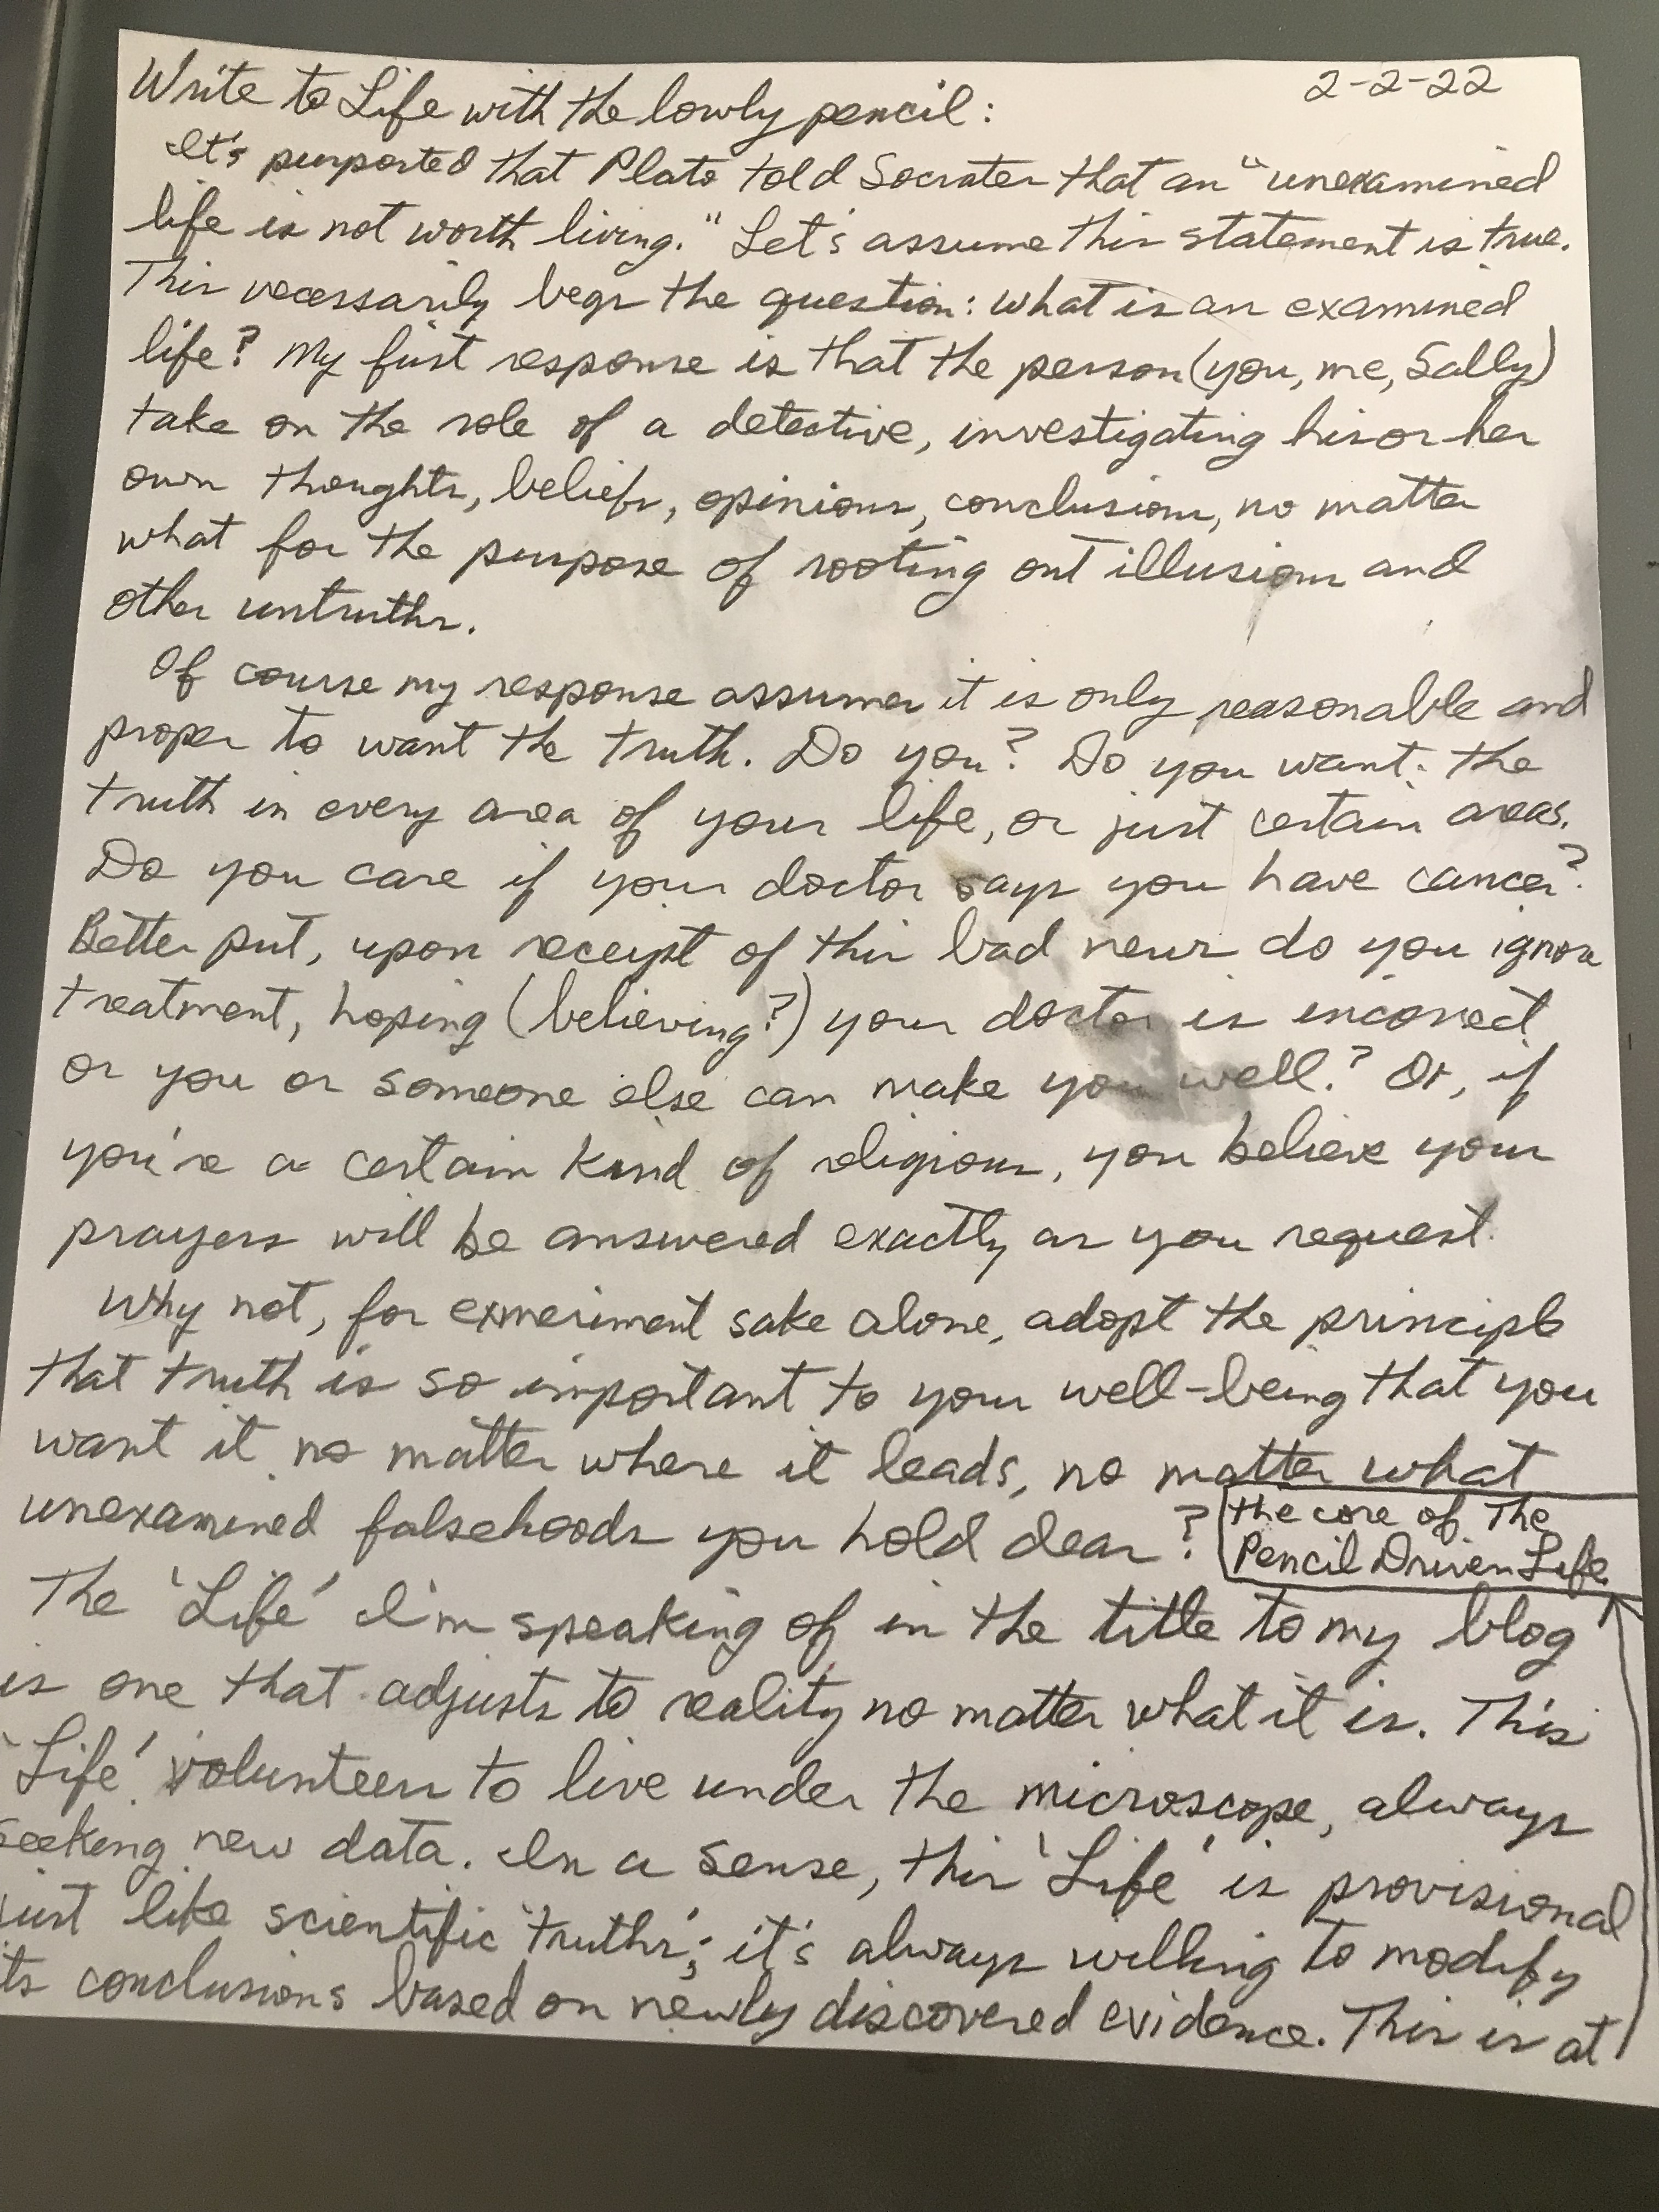 2-2-22
Write to Life with the lowly pencil:
It's purported that Plato told Socrates that an "unexamined
life is not worth living." Let's assume this statement is true.
This necessarily begs the question: what is an examined
life? My first response is that the person (you, me, Sally)
take on the role of a detective, investigating his or her
own thoughts, beliefs, opinions, conclusions, no matter
what for the purpose of rooting out illusions and
other untruths.
Of course my response assumes it is only reasonable and
proper to want the truth. Do you? Do you want the
truth in every area of your life, or just certain areas.
Do you care if your doctor says you have cancer?
Better put, upon receipt of this bad news do you ignore
treatment, hoping (believing?) your doctor is incorrect
or you or someone else can make you well? Or, if
you're a certain kind of religious, you believe your
prayers will be answered exactly as you request.
Why not, for exmeriment sake alone, adopt the principle
that truth is so important to your well-being that you
want it no matter where it leads, no matter what
unexamined falsehoods you hold dear?
The 'Life' I'm speaking of in the title to my blog
is one that adjusts to reality no matter what it is. This
'Life' volunteers to live under the microscope, always
seeking new data. In a sense, this 'Life' is provisional
just like scientific 'truths'; it's always willing to modify
its conclusions based on newly discovered evidence. This is at
the core of The
Pencil Driven Life.